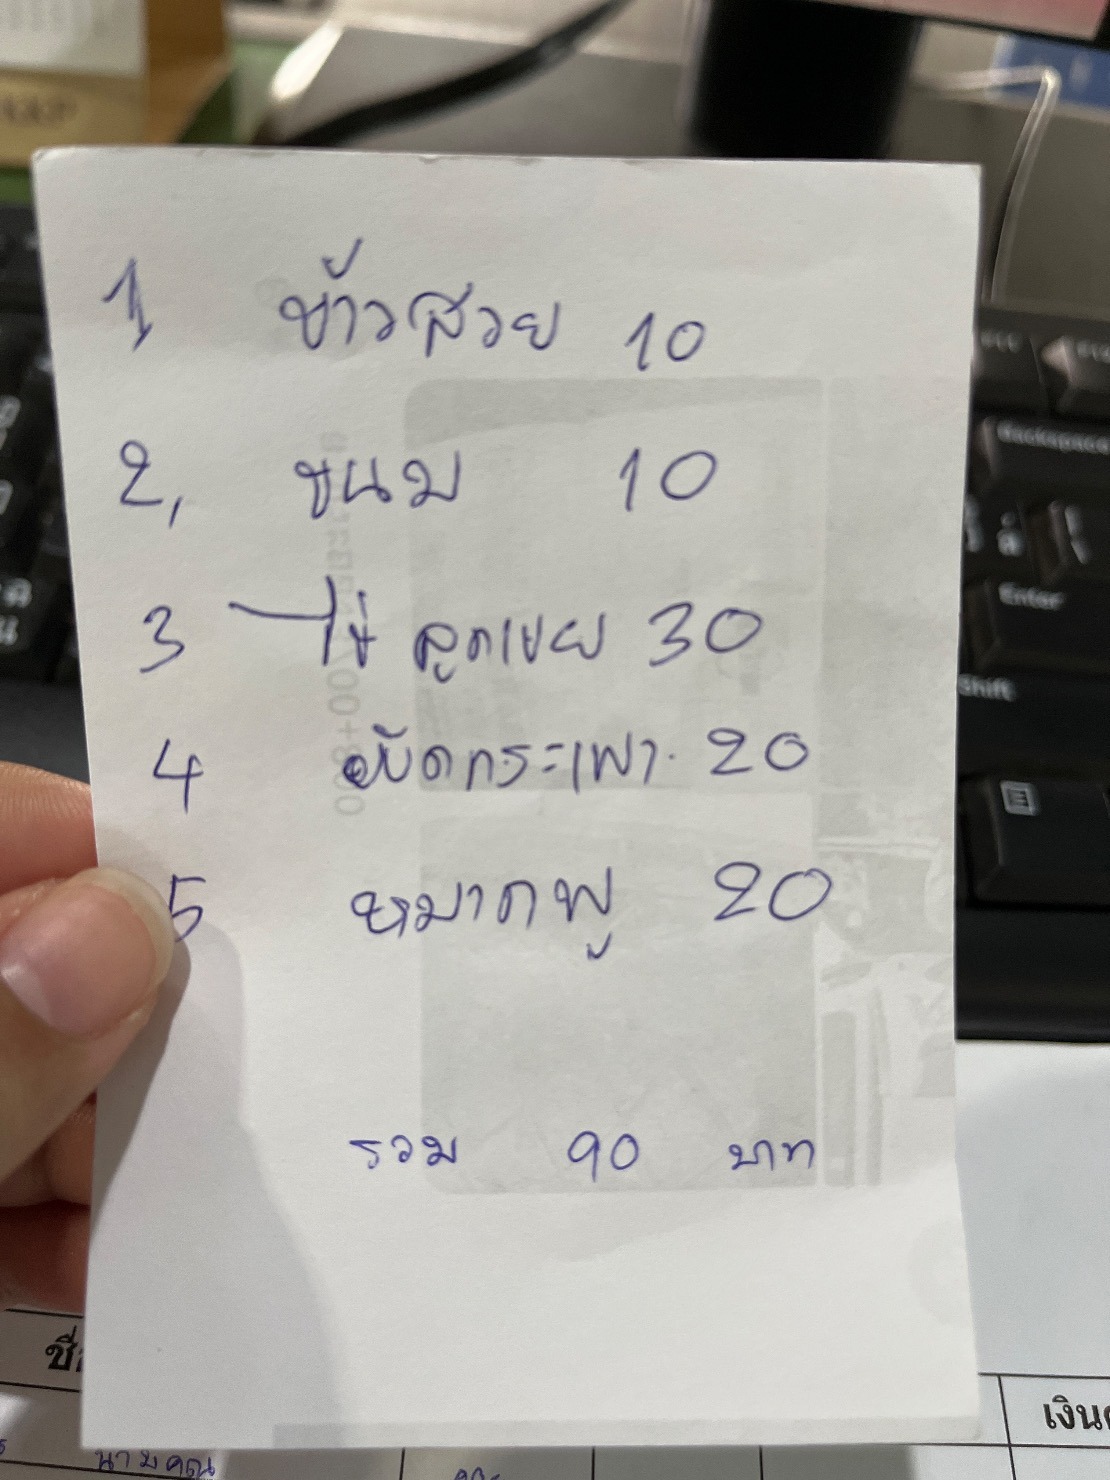 1, ข้าวสวย 10
2, ขนม 10
3 ไข่ ลูกเขย 30
4 ผัดกระเพา. 20
5 หมากพู 20
รวม 90 บาท
Backspace
Enter
Shift
ชื่
เงิน
นามคุณ